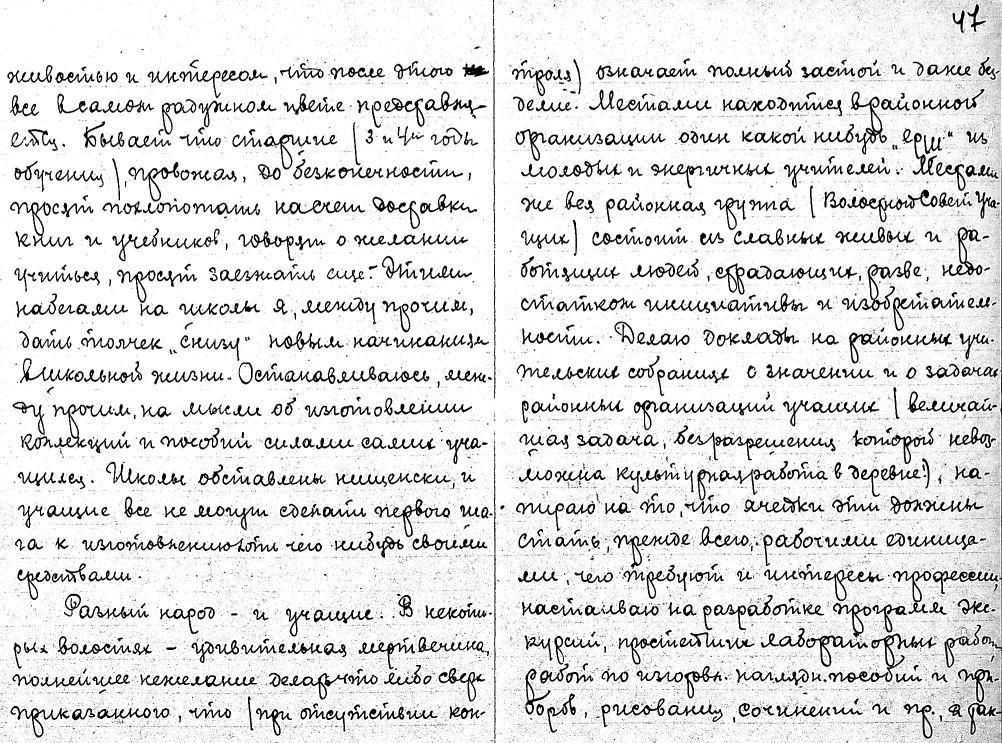 живостью и интересом, что после этого
все в самом радужном цвете представля-
ется. Бывает что старшие (3 и 4й годы
обучения), провожая, до безконечности,
просят похлопотать насчет доставки
книг и учебников, говорят о желании
учиться, просят заезжать еще. Этими
набегами на школы я, между прочим,
дать толчек „снизу“ новым начинаниям
в школьной жизни. Останавливаюсь, меж-
ду прочим, на мысли об изготовлении
коллекций и пособий силами самих уча-
щихся. Школы обставлены нищенски, и
учащие все не могут сделать первого ша-
га к изготовлению хоть чего нибудь своими
средствами.
Разный народ - и учащие. В некото-
рых волостях - удивительная мертвечина,
полнейшее нежелание делать что либо сверх
приказанного, что (при отсутствии кон-
47
троля) означает полный застой и даже без
делие. Местами находится в районной
организации один какой нибудь „ерш“ из
молодых и энергичных учителей. Местами
же вся районная группа (Волостной Совет Уча-
щих) состоит из славных живых и ра-
ботящих людей, страдающих, разве, недо-
статком инициативы и изобретатель-
ности. Делаю доклады на районных учи-
тельских собраниях о значении и о задачах
районных организаций учащих (величай-
шая задача, без разрешения которой невоз-
можна культурная работа в деревне!), на-
пираю на то, что ячейки эти должны
стать, прежде всего, рабочими единица-
ми, чего требуют и интересы профессии,
настаиваю на разработке программ экс-
курсий, простейших лабораторных работ,
работ по изготовл. наглядн. пособий и при-
боров, рисования, сочинений и пр., а так-